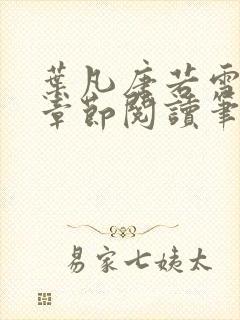 葉凡唐若雪
章節閱讀筆
易家七姨太